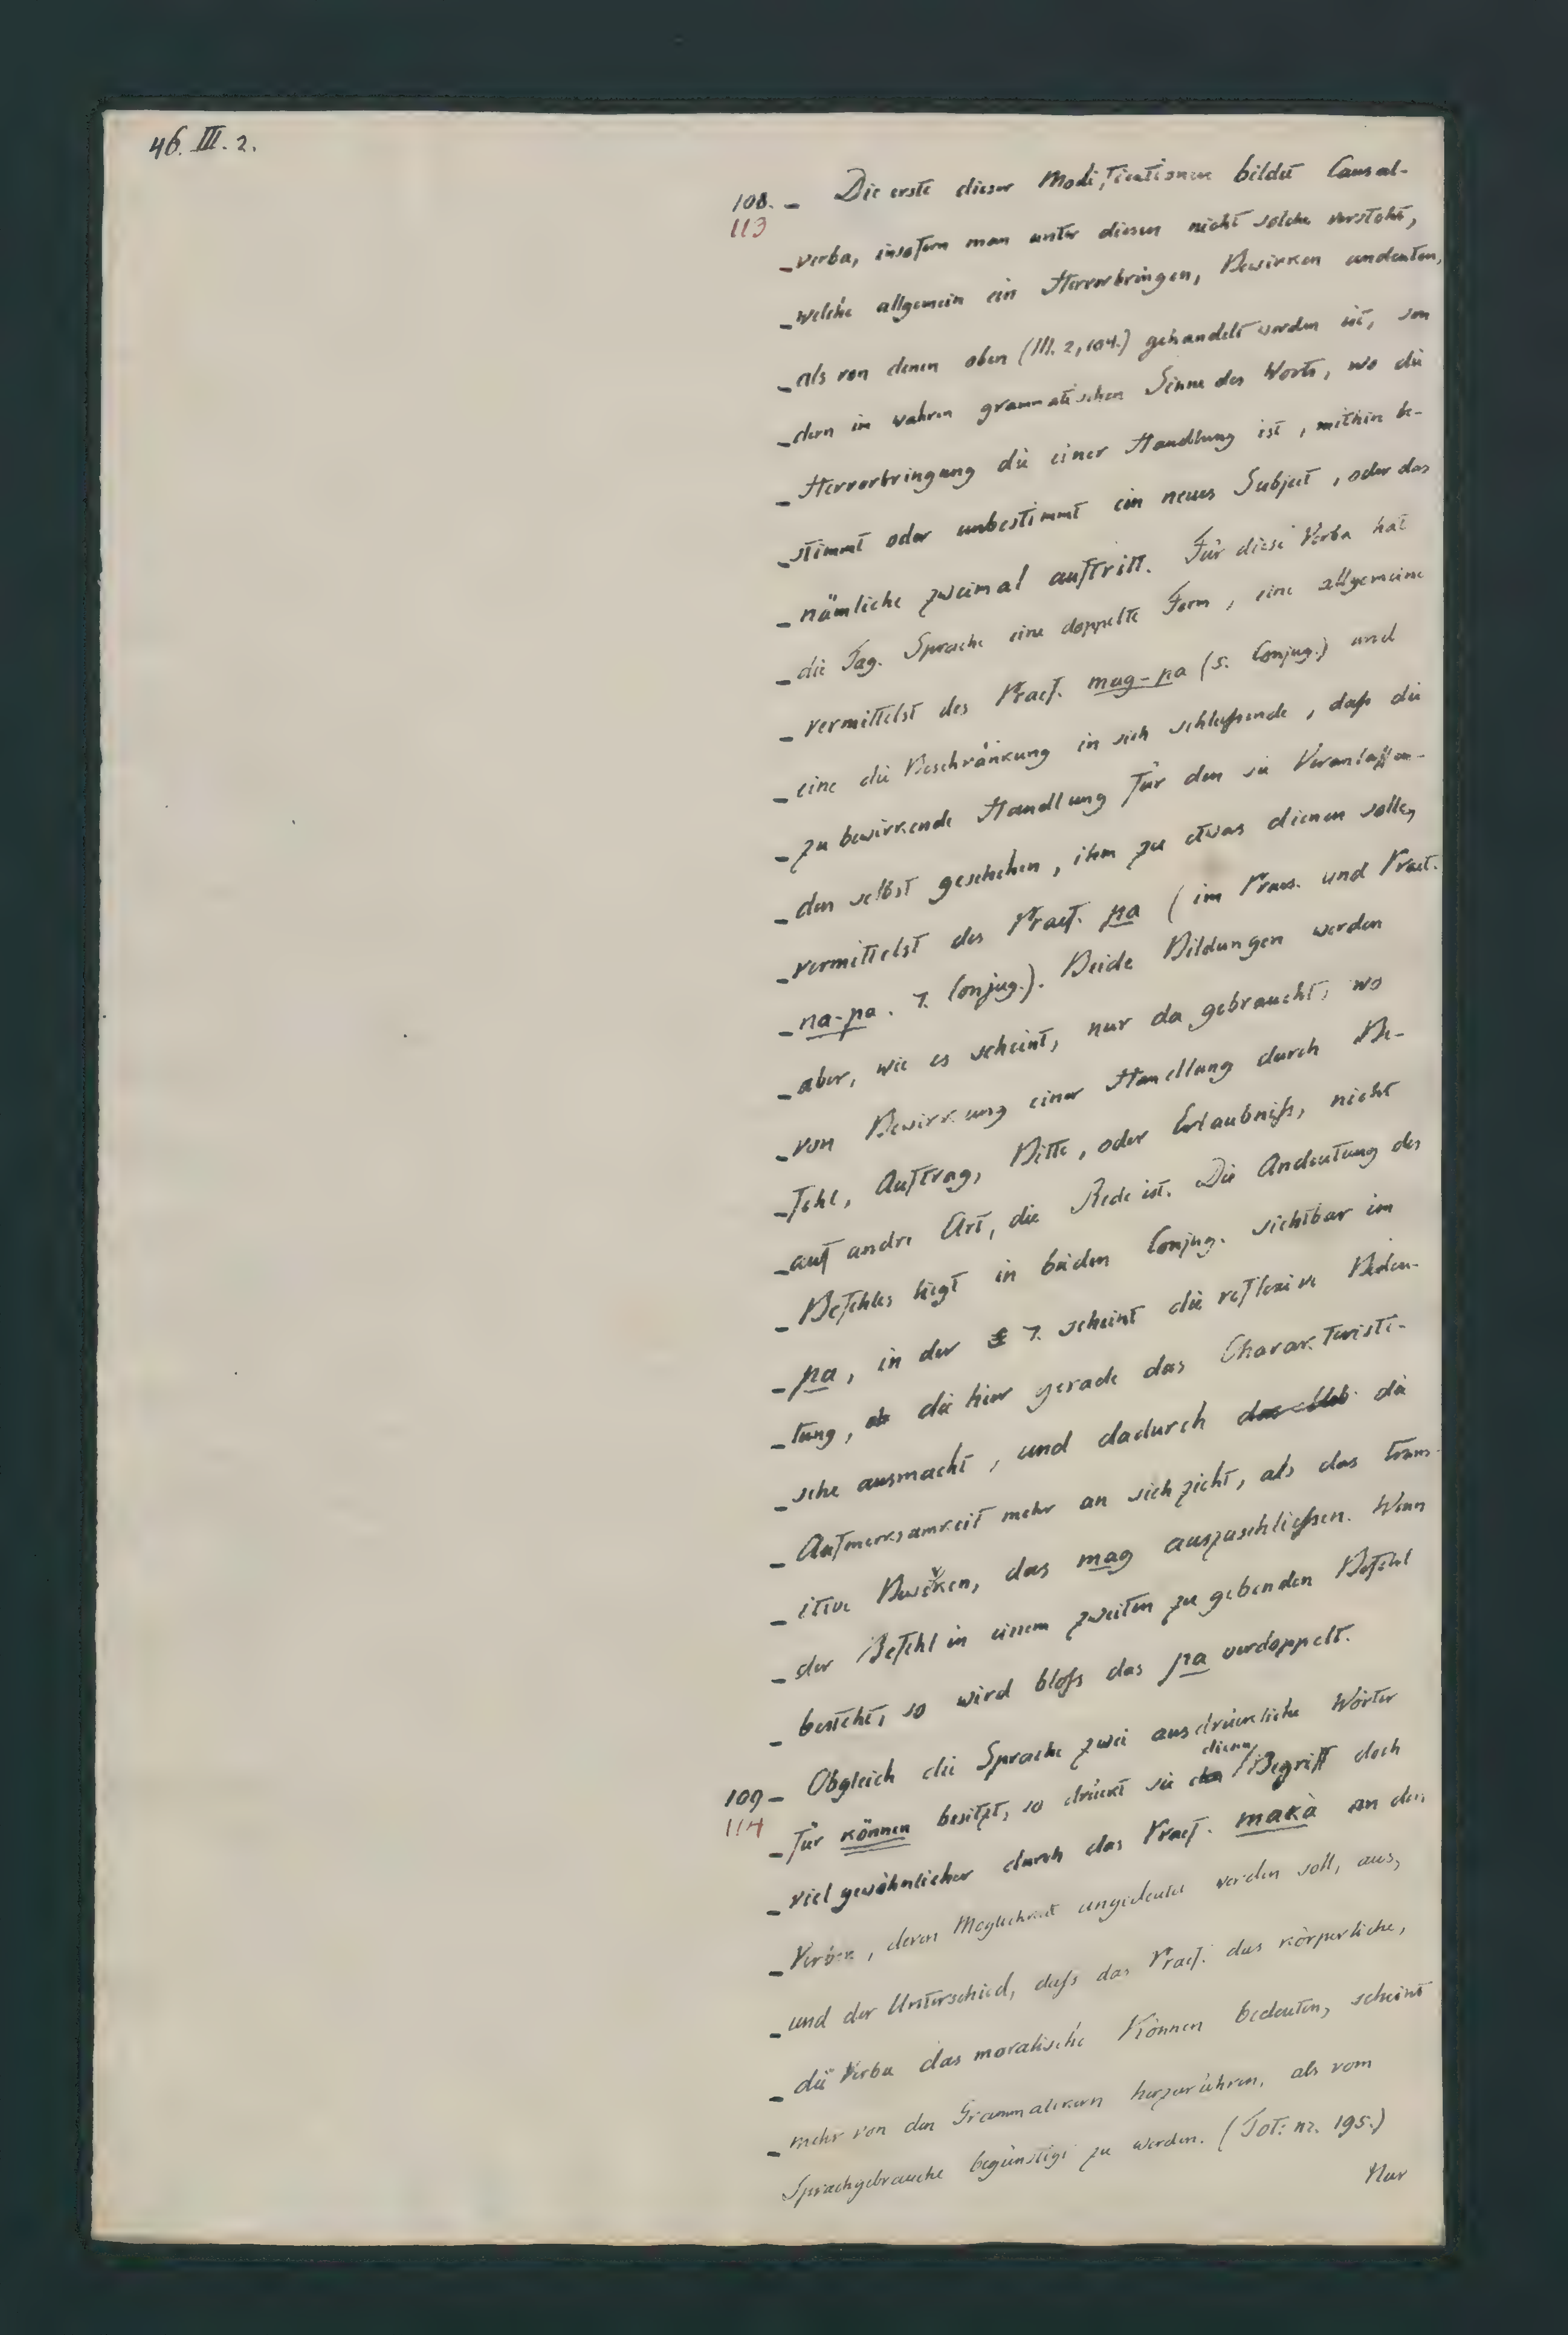 46. III. 2.
108. – Die erste dieser Modificationen bildet Causal-
113
– verba, insofern man unter diesen nicht solche versteht,
– welche allgemein ein Hervorbringen, Bewirken andeuten,
– als von denen oben (III. 2, 104.) gehandelt worden ist, son
– dern im wahren grammatischen Sinne des Worts, wo die
– Hervorbringung die einer Handlung ist, mithin be-
– stimmt oder unbestimmt ein neues Subject, oder das
– nämliche zweimal auftritt. Für diese Verba hat
– die Tag. Sprache eine doppelte Form, eine allgemeine
– vermittelst des Praef. mag-pa (5. Conjug.) und
– eine die Beschränkung in sich schließende, daß die
– zu bewirkende Handlung für den sie Veranlassen-
– den selbst geschehen, ihm zu etwas dienen solle,
– vermittelst des Praef. pa (im Praes. und Praet.
– na-pa. 7. Conjug.). Beide Bildungen werden
– aber, wie es scheint, nur da gebraucht, wo
– von Bewirkung einer Handlung durch Be-
– fehl, Auftrag, Bitte, oder Erlaubniß, nicht
– auf andre Art, die Rede ist. Die Andeutung des
– Befehles liegt in beiden Conjug. sichtbar im
– pa, in der 7. scheint die reflexive Bedeu-
– tung, die hier gerade das Charakteristi-
– sche ausmacht, und dadurch die
– Aufmerksamkeit mehr an sich zieht, als das trans-
– itive Bewirken, das mag auszuschließen. Wenn
– der Befehl in einem zweiten zu gebenden Befehl
– besteht, so wird bloß das pa verdoppelt.
109 – Obgleich die Sprache zwei ausdrückliche Wörter
114
– für können besitzt, so drückt sie diesen Begriff doch
– viel gewöhnlicher durch das Praef. makà an den
– Verben, deren Möglichkeit angedeutet werden soll, aus,
– und der Unterschied, daß das Praef. das körperliche,
– die Verba das moralische Können bedeuten, scheint
– mehr von den Grammatikern herzurühren, als vom
Sprachgebrauche begünstigt zu werden. (Tot: nr. 195.)
Nur